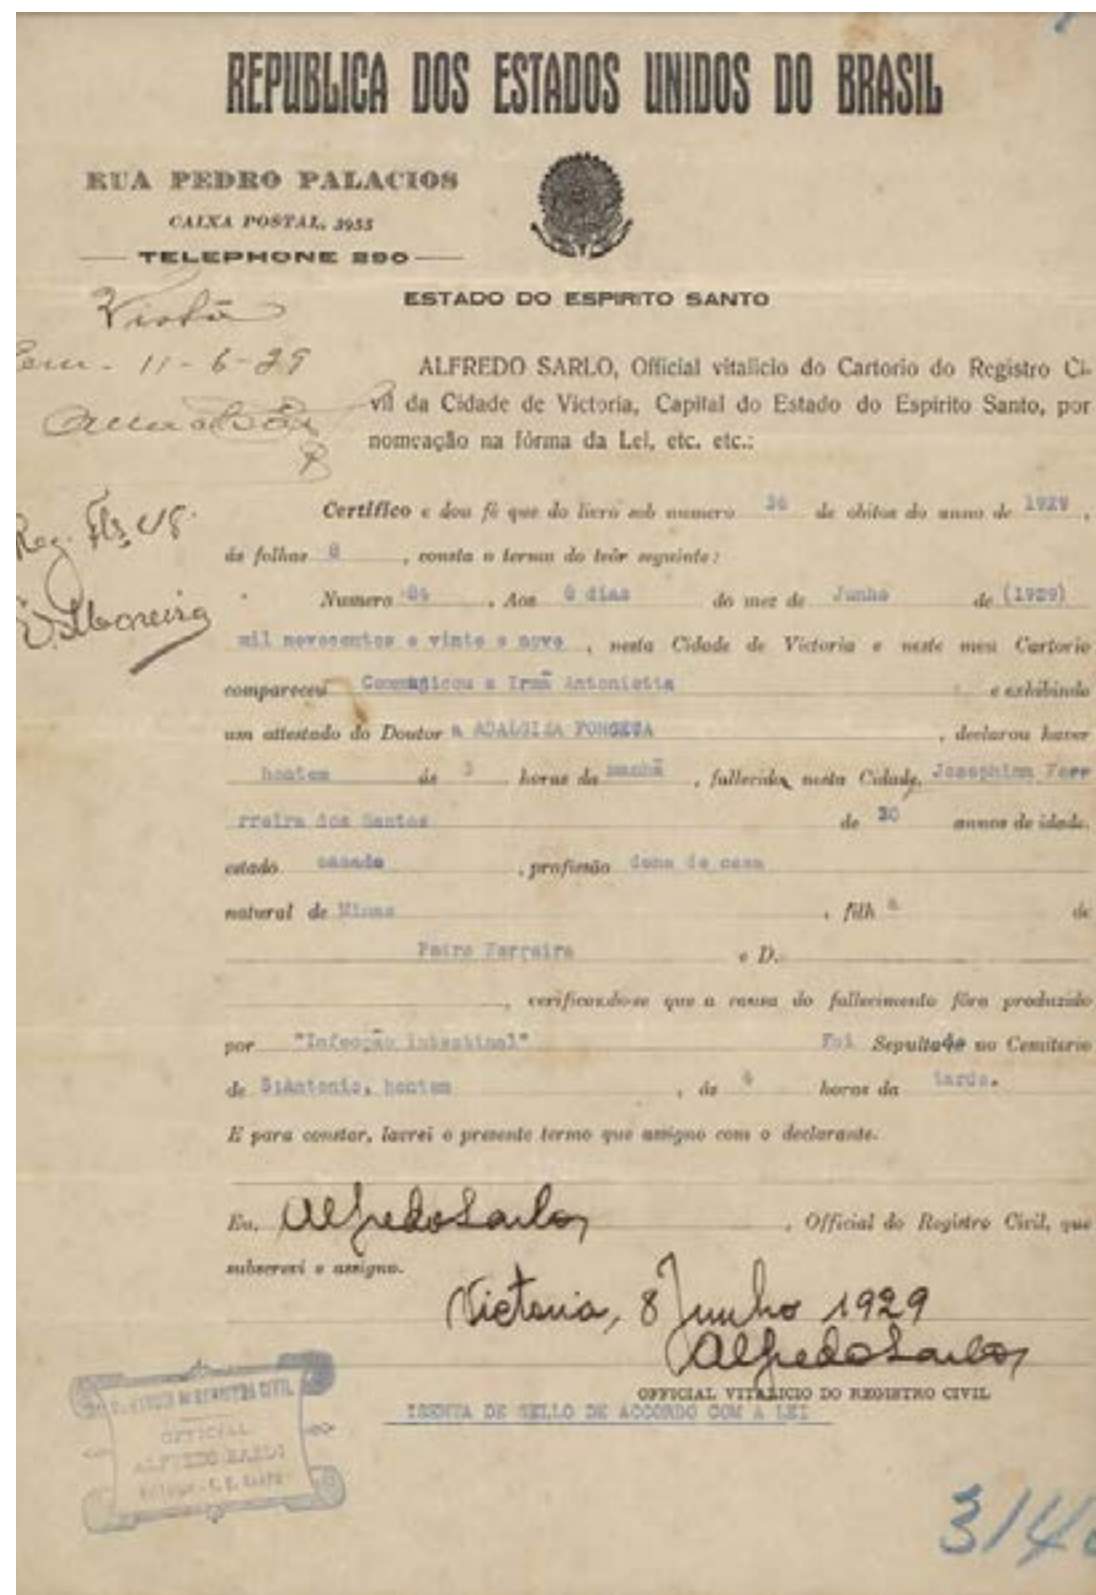 REPUBLICA DOS ESTADOS UNIDOS DO BRASIL
RUA PEDRO PALACIOS
CAIXA POSTAL, 3955
TELEPHONE 290
ESTADO DO ESPIRITO SANTO
11-6-29
ALFREDO SARLO, Official vitalicio do Cartorio do Registro Ci-
vil da Cidade de Victoria, Capital do Estado do Espirito Santo, por
nomeação na fórma da Lei, etc. etc.:
Reg. Fls
Moreira
Certifico e dou fé que do livro sob numero 36 de obitos do anno de 1929,
ás folhas 8, consta o termo do teôr seguinte:
Numero 84. Aos 8 dias do mez de Junho de (1929)
mil novecentos e vinte e nove, nesta Cidade de Victoria e neste meu Cartorio
compareceu Communicou a Irmã Antonietta e exhibindo
um attestado do Doutor a ADALGIZA FONSECA, declarou haver
hontem ás 3 horas da manhã, fallecida, nesta Cidade, Josephina Ferr
rreira dos Santos de 30 annos de idade,
estado casada, profissão dona de casa
natural de Minas, filh a de
Pedro Ferreira e D.
, cerificando-se que a causa do fallecimento fôra produzido
por "Infecção intestinal" Foi Sepultada no Cemiterio
de S:Antonio, hontem, ás 4 horas da tarde.
E para constar, lavrei o presente termo que assigno com o declarante.
Eu, Alfredo Sarlo, Official do Registro Civil, que
subscrevi e assigno.
Victoria, 8 Junho 1929
Alfredo Sarlo
OFFICIAL VITALICIO DO REGISTRO CIVIL
ISENTA DE SELLO DE ACCORDO COM A LEI
REGISTRO CIVIL
OFFICIAL
ALFREDO SARLO
314